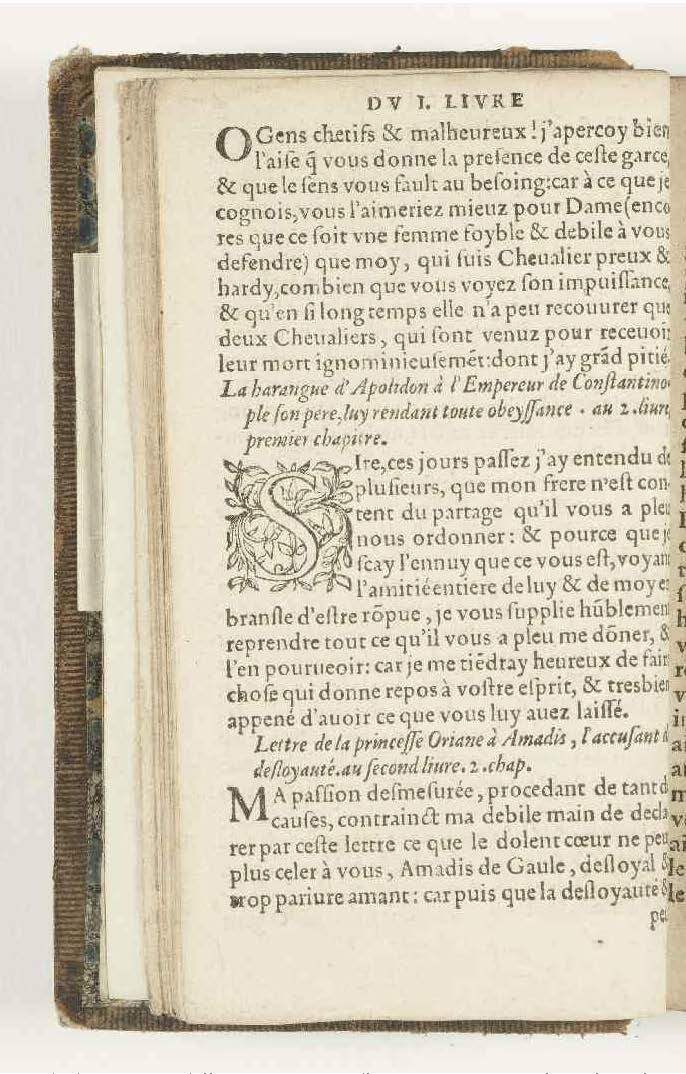 DV I. LIVRE
O Gens chetifs & malheureux! j'apercoy bien
l'aiſe q̃ vous donne la preſence de ceſte garce,
& que le ſens vous fault au beſoing:car à ce que je
cognois,vous l'aimeriez mieuz pour Dame(enco
res que ce ſoit vne femme foyble & debile à vous
defendre) que moy, qui ſuis Cheualier preux &
hardy,combien que vous voyez ſon impuiſſance,
& qu'en ſi long temps elle n'a peu recouurer que
deux Cheualiers, qui ſont venuz pour receuoir
leur mort ignominieuſemẽt:dont j'ay grãd pitié.
La harangue d'Apolidon à l'Empereur de Conſtantino
ple ſon pere,luy rendant toute obeyſſance . au 2.liure
premier chapitre.
SIre,ces jours paſſez j'ay entendu de
pluſieurs, que mon frere n'eſt con
tent du partage qu'il vous a pleu
nous ordonner: & pource que je
ſcay l'ennuy que ce vous eſt,voyant
l'amitié entiere de luy & de moy e
branſle d'eſtre rõpue, je vous ſupplie hũblemen
reprendre tout ce qu'il vous a pleu me dõner, &
l'en pourueoir: car je me tiẽdray heureux de fair
choſe qui donne repos à voſtre eſprit, & tresbien
appené d'auoir ce que vous luy auez laiſſé.
Lettre de la princeſſe Oriane à Amadis, l'accuſant d
deſloyauté.au ſecond liure. 2.chap.
MA paſſion deſmeſurée, procedant de tant d
cauſes, contrainct ma debile main de decla
rer par ceſte lettre ce que le dolent cœur ne peu
plus celer à vous, Amadis de Gaule, deſloyal &
trop pariure amant: car puis que la deſloyauté &
pe